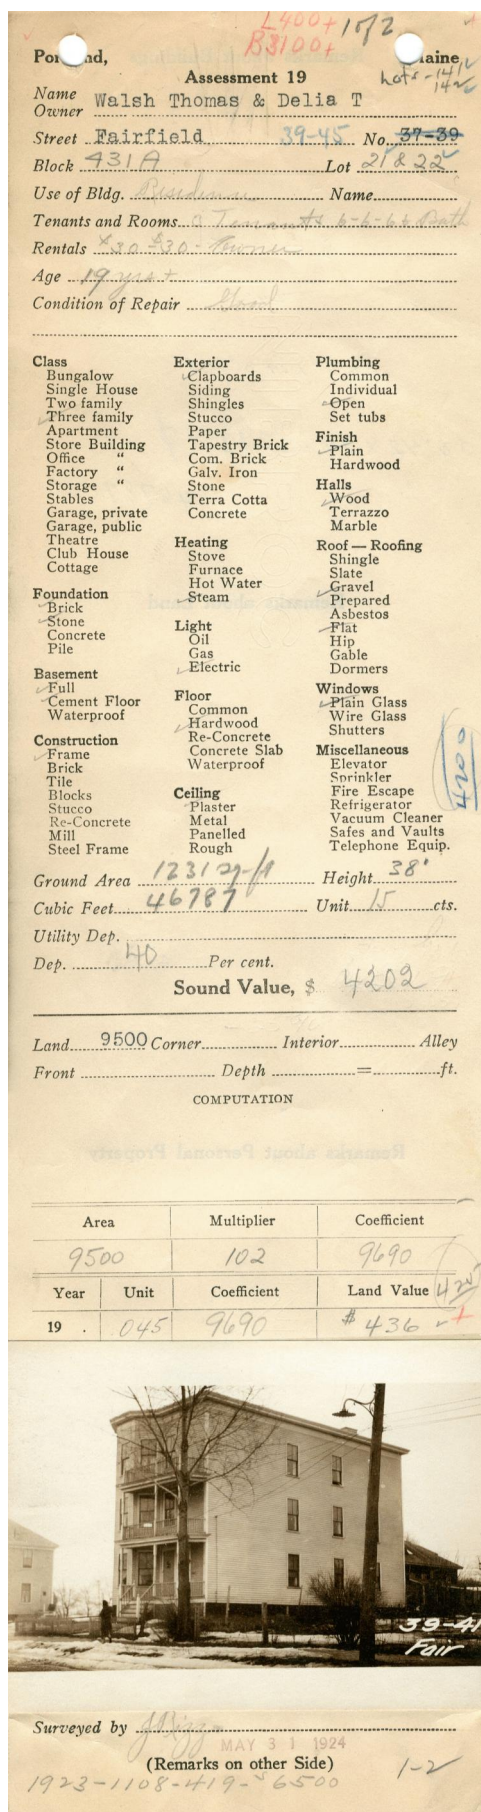 L400+ 1 of 2
B3100+
Portland, Maine
Assessment 19
Lots-141
142
Name
Owner Walsh Thomas & Delia T
Street Fairfield 39-45 No. 37-39
Block 431A Lot 21 & 22
Use of Bldg. Residence Name
Tenants and Rooms 3 Tenants 6-6-6 & Bath
Rentals $30-$30-Owner
Age 19 yrs +
Condition of Repair Good
Class
Bungalow
Single House
Two family
Three family
Apartment
Store Building
Office "
Factory "
Storage "
Stables
Garage, private
Garage, public
Theatre
Club House
Cottage
Foundation
Brick
Stone
Concrete
Pile
Basement
Full
Cement Floor
Waterproof
Construction
Frame
Brick
Tile
Blocks
Stucco
Re-Concrete
Mill
Steel Frame
Exterior
Clapboards
Siding
Shingles
Stucco
Paper
Tapestry Brick
Com. Brick
Galv. Iron
Stone
Terra Cotta
Concrete
Heating
Stove
Furnace
Hot Water
Steam
Light
Oil
Gas
Electric
Floor
Common
Hardwood
Re-Concrete
Concrete Slab
Waterproof
Ceiling
Plaster
Metal
Panelled
Rough
Plumbing
Common
Individual
Open
Set tubs
Finish
Plain
Hardwood
Halls
Wood
Terrazzo
Marble
Roof — Roofing
Shingle
Slate
Gravel
Prepared
Asbestos
Flat
Hip
Gable
Dormers
Windows
Plain Glass
Wire Glass
Shutters
Miscellaneous
Elevator
Sprinkler
Fire Escape
Refrigerator
Vacuum Cleaner
Safes and Vaults
Telephone Equip.
4200
Ground Area 1231 sq-ft Height 38'
Cubic Feet 46787 Unit 15 cts.
Utility Dep.
Dep. 40 Per cent.
Sound Value, $ 4202
Land 9500 Corner Interior Alley
Front Depth = ft.
COMPUTATION
Area Multiplier Coefficient
9500 102 9690
Year Unit Coefficient Land Value 425
19 . 045 9690 $ 436 +
39-41
Fair
Surveyed by
MAY 31 1924
(Remarks on other Side)
1-2
1923-1108-419-$6500